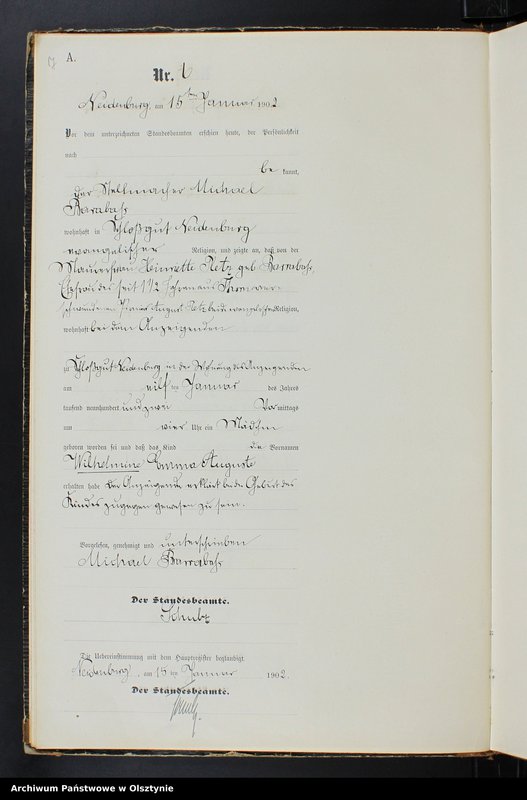 A.
Nr. 6
Neidenburg, am 15ten Januar 1902
Vor dem unterzeichneten Standesbeamten erschien heute, der Persönlichkeit
nach
be kannt,
der Stellmacher Michael
Barrabaß
wohnhaft in Schloßgut Neidenburg
evangelischer Religion, und zeigte an, daß von der
Maurerfrau Henriette Retz geb. Barrabaß,
Ehefrau des seit 1 1/2 Jahren aus
August Retz beide evangelischer Religion,
wohnhaft bei dem Anzeigenden
zu Schloßgut Neidenburg in der Wohnung des Anzeigenden
am elf ten Januar des Jahres
tausend neunhundert und zwei Vor mittags
um vier Uhr ein Mädchen
geboren worden sei und daß das Kind die Vornamen
Wilhelmine Emma Auguste
erhalten habe. Der Anzeigende erklärt bei der Geburt des
Kindes zugegen gewesen zu sein.
Vorgelesen, genehmigt und unterschrieben
Michael Barrabaß
Der Standesbeamte.
Schulz
Die Uebereinstimmung mit dem Hauptregister beglaubigt.
Neidenburg, am 15 ten Januar 1902.
Der Standesbeamte.
Archiwum Państwowe w Olsztynie